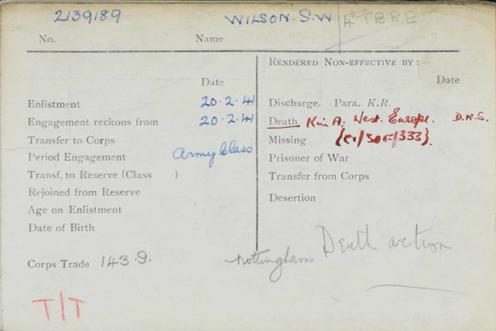 2139189 WILSON. S.W 4TH T.B.R.E
No. Name
RENDERED NON-EFFECTIVE BY:—
Date Date
Enlistment 20.2.41 Discharge. Para. K.R.
Engagement reckons from 20.2.41 Death K in A. West. Europe. D.N.S.
Transfer to Corps Missing
Period Engagement Army Class Prisoner of War
Transf. to Reserve (Class ) Transfer from Corps
Rejoined from Reserve
Age on Enlistment Desertion
Date of Birth
Corps Trade 143.9. Nottingham Death action
T/T